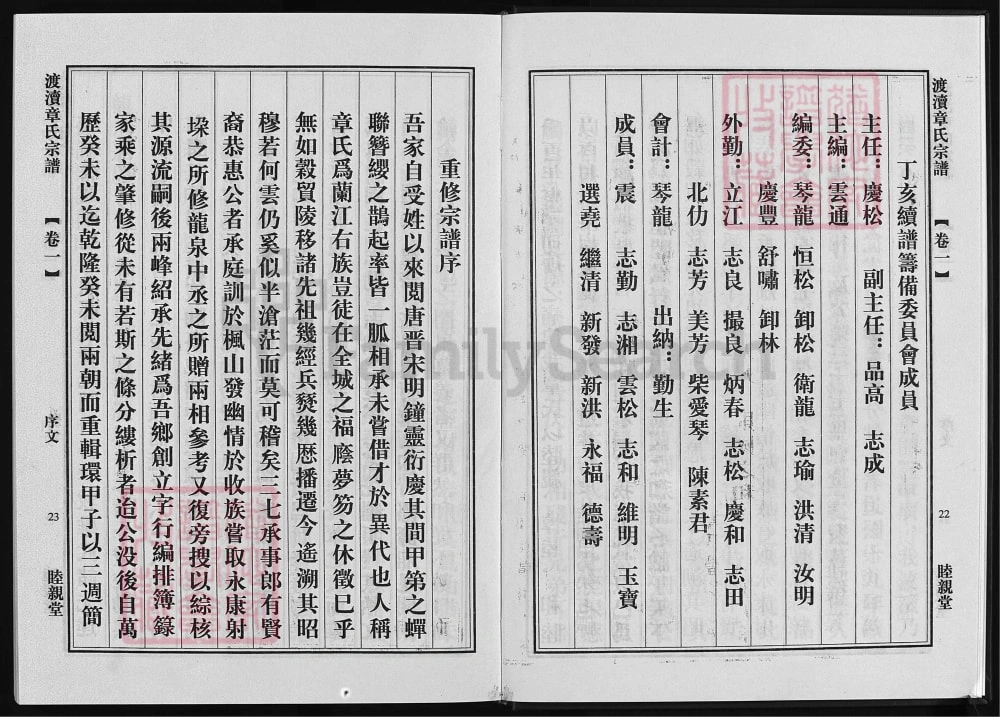 渡瀆章氏宗譜
【卷一】
22
睦親堂
丁亥續譜籌備委員會成員
主任：慶松　副主任：品高　志成
主編：雲通
編委：琴龍　恒松　卸松　衛龍　志瑜　洪清　汝明
慶豐　舒嘯　卸林
外勤：立江　志良　撮良　炳春　志松　慶和　志田
北仂　志芳　美芳　柴愛琴　陳素君
會計：琴龍　出納：勤生
成員：震　志勤　志湘　雲松　志和　維明　玉寶
選堯　繼清　新發　新洪　永福　德壽
重修宗譜序
吾家自受姓以來閱唐晋宋明鐘靈衍慶其間甲第之蟬
聯簪纓之鵲起率皆一脈相承未嘗借才於異代也人稱
章氏爲蘭江右族豈徒在全城之福廕夢笏之休徵巳乎
無如穀貿陵移諸先祖幾經兵燹幾歷播遷今遙溯其昭
穆若何雲仍奚似半滄茫而莫可稽矣三七承事郎有賢
裔恭惠公者承庭訓於楓山發幽情於收族嘗取永康射
垛之所修龍泉中丞之所贈兩相參考又復旁搜以綜核
其源流嗣後兩峰紹承先緒爲吾鄉創立字行編排簿籙
家乘之肇修從未有若斯之條分縷析者迨公没後自萬
歷癸未以迄乾隆癸未閱兩朝而重輯環甲子以三週簡
渡瀆章氏宗譜
【卷一】
序文
23
睦親堂
FamilySearch